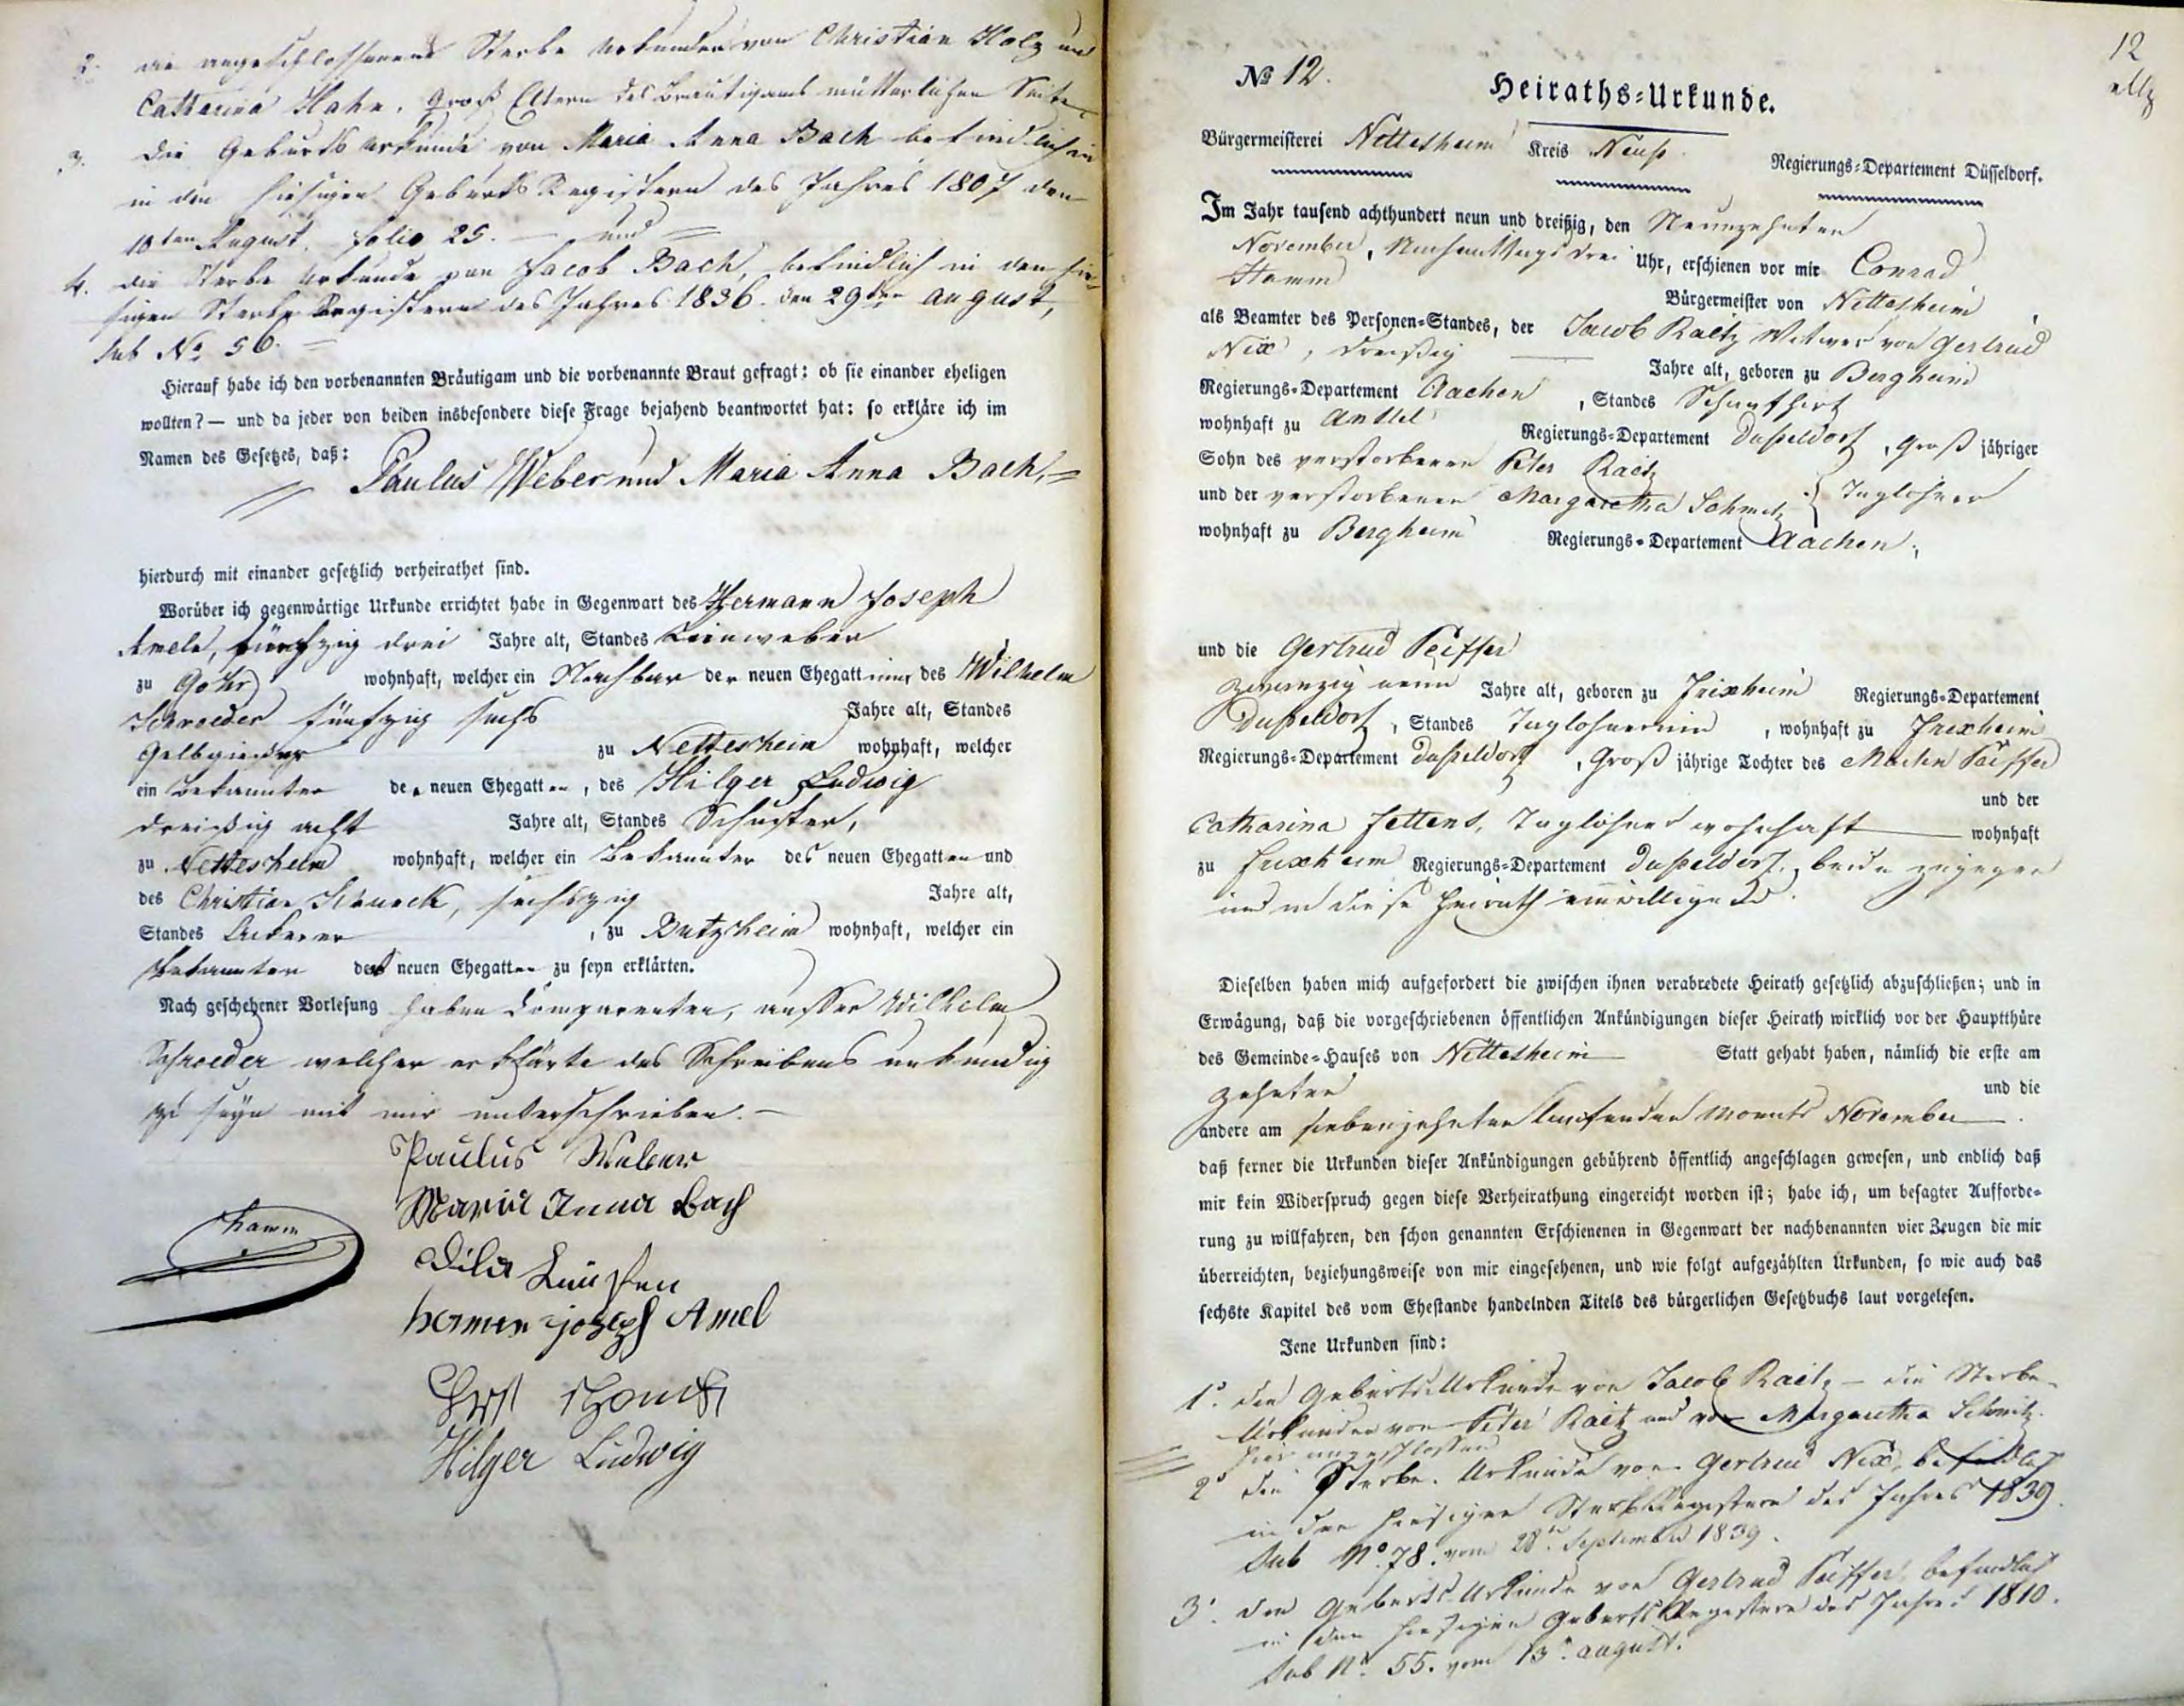 2. die angeschlossenen Sterbe Urkunden von Christian Holz und
Catharina Hahn, Groß Eltern des Bräutigams mütterlicher Seite
3. die Geburts Urkunde von Maria Anna Bach befindlich
in den hiesigen Geburts Registern des Jahres 1807 den
10ten August. folio 25. — und =
4. die Sterbe Urkunde von Jacob Bach, befindlich in den hie-
sigen Sterbe Registern des Jahres 1836. den 29ten August,
sub No 56. =
Hierauf habe ich den vorbenannten Bräutigam und die vorbenannte Braut gefragt: ob sie einander eheligen
wollten? — und da jeder von beiden insbesondere diese Frage bejahend beantwortet hat: so erkläre ich im
Namen des Gesetzes, daß:
Paulus Weber und Maria Anna Bach, =
hierdurch mit einander gesetzlich verheirathet sind.
Worüber ich gegenwärtige Urkunde errichtet habe in Gegenwart des Hermann Joseph
Amels, fünfzig drei Jahre alt, Standes Leinweber
zu Gohr wohnhaft, welcher ein Nachbar der neuen Ehegattinn, des Wilhelm
Schroeder fünfzig sechs Jahre alt, Standes
Gelbgießer zu Nettesheim wohnhaft, welcher
ein Bekannter der neuen Ehegatten, des Hilger Ludwig
dreißig acht Jahre alt, Standes Schuster,
zu Nettesheim wohnhaft, welcher ein Bekannter des neuen Ehegatten und
des Christian Schunck, sechszig Jahre alt,
Standes Ackerer, zu Butzheim wohnhaft, welcher ein
Bekannter des neuen Ehegatten zu seyn erklärten.
Nach geschehener Vorlesung haben Comparenten, ausser Wilhelm
Schroeder welcher erklärte des Schreibens unkundig
zu seyn mit mir unterschrieben. —
Paulus Weber
Maria Anna Bach
Hamm
hermen joseph Amel
Hilger Ludwig
12
No 12.
Heiraths-Urkunde.
Bürgermeisterei Nettesheim Kreis Neuß Regierungs-Departement Düsseldorf.
Im Jahr tausend achthundert neun und dreißig, den Neunzehnten
November, Nachmittags drei Uhr, erschienen vor mir Conrad
Hamm Bürgermeister von Nettesheim
als Beamter des Personen-Standes, der Jacob Raitz Witwer von Gertrud
Nix, dreißig — Jahre alt, geboren zu Bergheim
Regierungs-Departement Aachen, Standes
wohnhaft zu Anstel Regierungs-Departement Dußeldorf, Groß jähriger
Sohn des verstorbenen Peter Raitz
und der verstorbenen Margaretha Schmitz Taglöhner
wohnhaft zu Bergheim Regierungs-Departement Aachen,
und die Gertrud Peiffer
zwanzig neun Jahre alt, geboren zu Frixheim Regierungs-Departement
Dußeldorf, Standes Taglöhnerinn, wohnhaft zu Frixheim
Regierungs-Departement Dußeldorf, Groß jährige Tochter des Martin Peiffer
und der
Catharina Jettens, Taglöhner wohnhaft — wohnhaft
zu Frixheim Regierungs-Departement Dußeldorf, beide zugegen
und in diese Heirath einwilligend.
Dieselben haben mich aufgefordert die zwischen ihnen verabredete Heirath gesetzlich abzuschließen; und in
Erwägung, daß die vorgeschriebenen öffentlichen Ankündigungen dieser Heirath wirklich vor der Hauptthüre
des Gemeinde-Hauses von Nettesheim Statt gehabt haben, nämlich die erste am
zehnten und die
andere am siebenzehnten laufenden Monats November
daß ferner die Urkunden dieser Ankündigungen gebührend öffentlich angeschlagen gewesen, und endlich daß
mir kein Widerspruch gegen diese Verheirathung eingereicht worden ist; habe ich, um besagter Aufforde-
rung zu willfahren, den schon genannten Erschienenen in Gegenwart der nachbenannten vier Zeugen die mir
überreichten, beziehungsweise von mir eingesehenen, und wie folgt aufgezählten Urkunden, so wie auch das
sechste Kapitel des vom Ehestande handelnden Titels des bürgerlichen Gesetzbuchs laut vorgelesen.
Jene Urkunden sind:
1. die Geburts-Urkunde von Jacob Raitz — die Sterbe-
Urkunden von Peter Raitz und von Margaretha Schmitz
hier angeschlossen
2. die Sterbe-Urkunde von Gertrud Nix, befindlich
in den hiesigen Sterb Registern des Jahres 1839.
sub No. 78. vom 28ten September 1839.
3. die Geburts-Urkunde von Gertrud Peiffer, befindlich
in den hiesigen Geburts Registern des Jahres 1810.
sub No. 55. vom 13ten August.